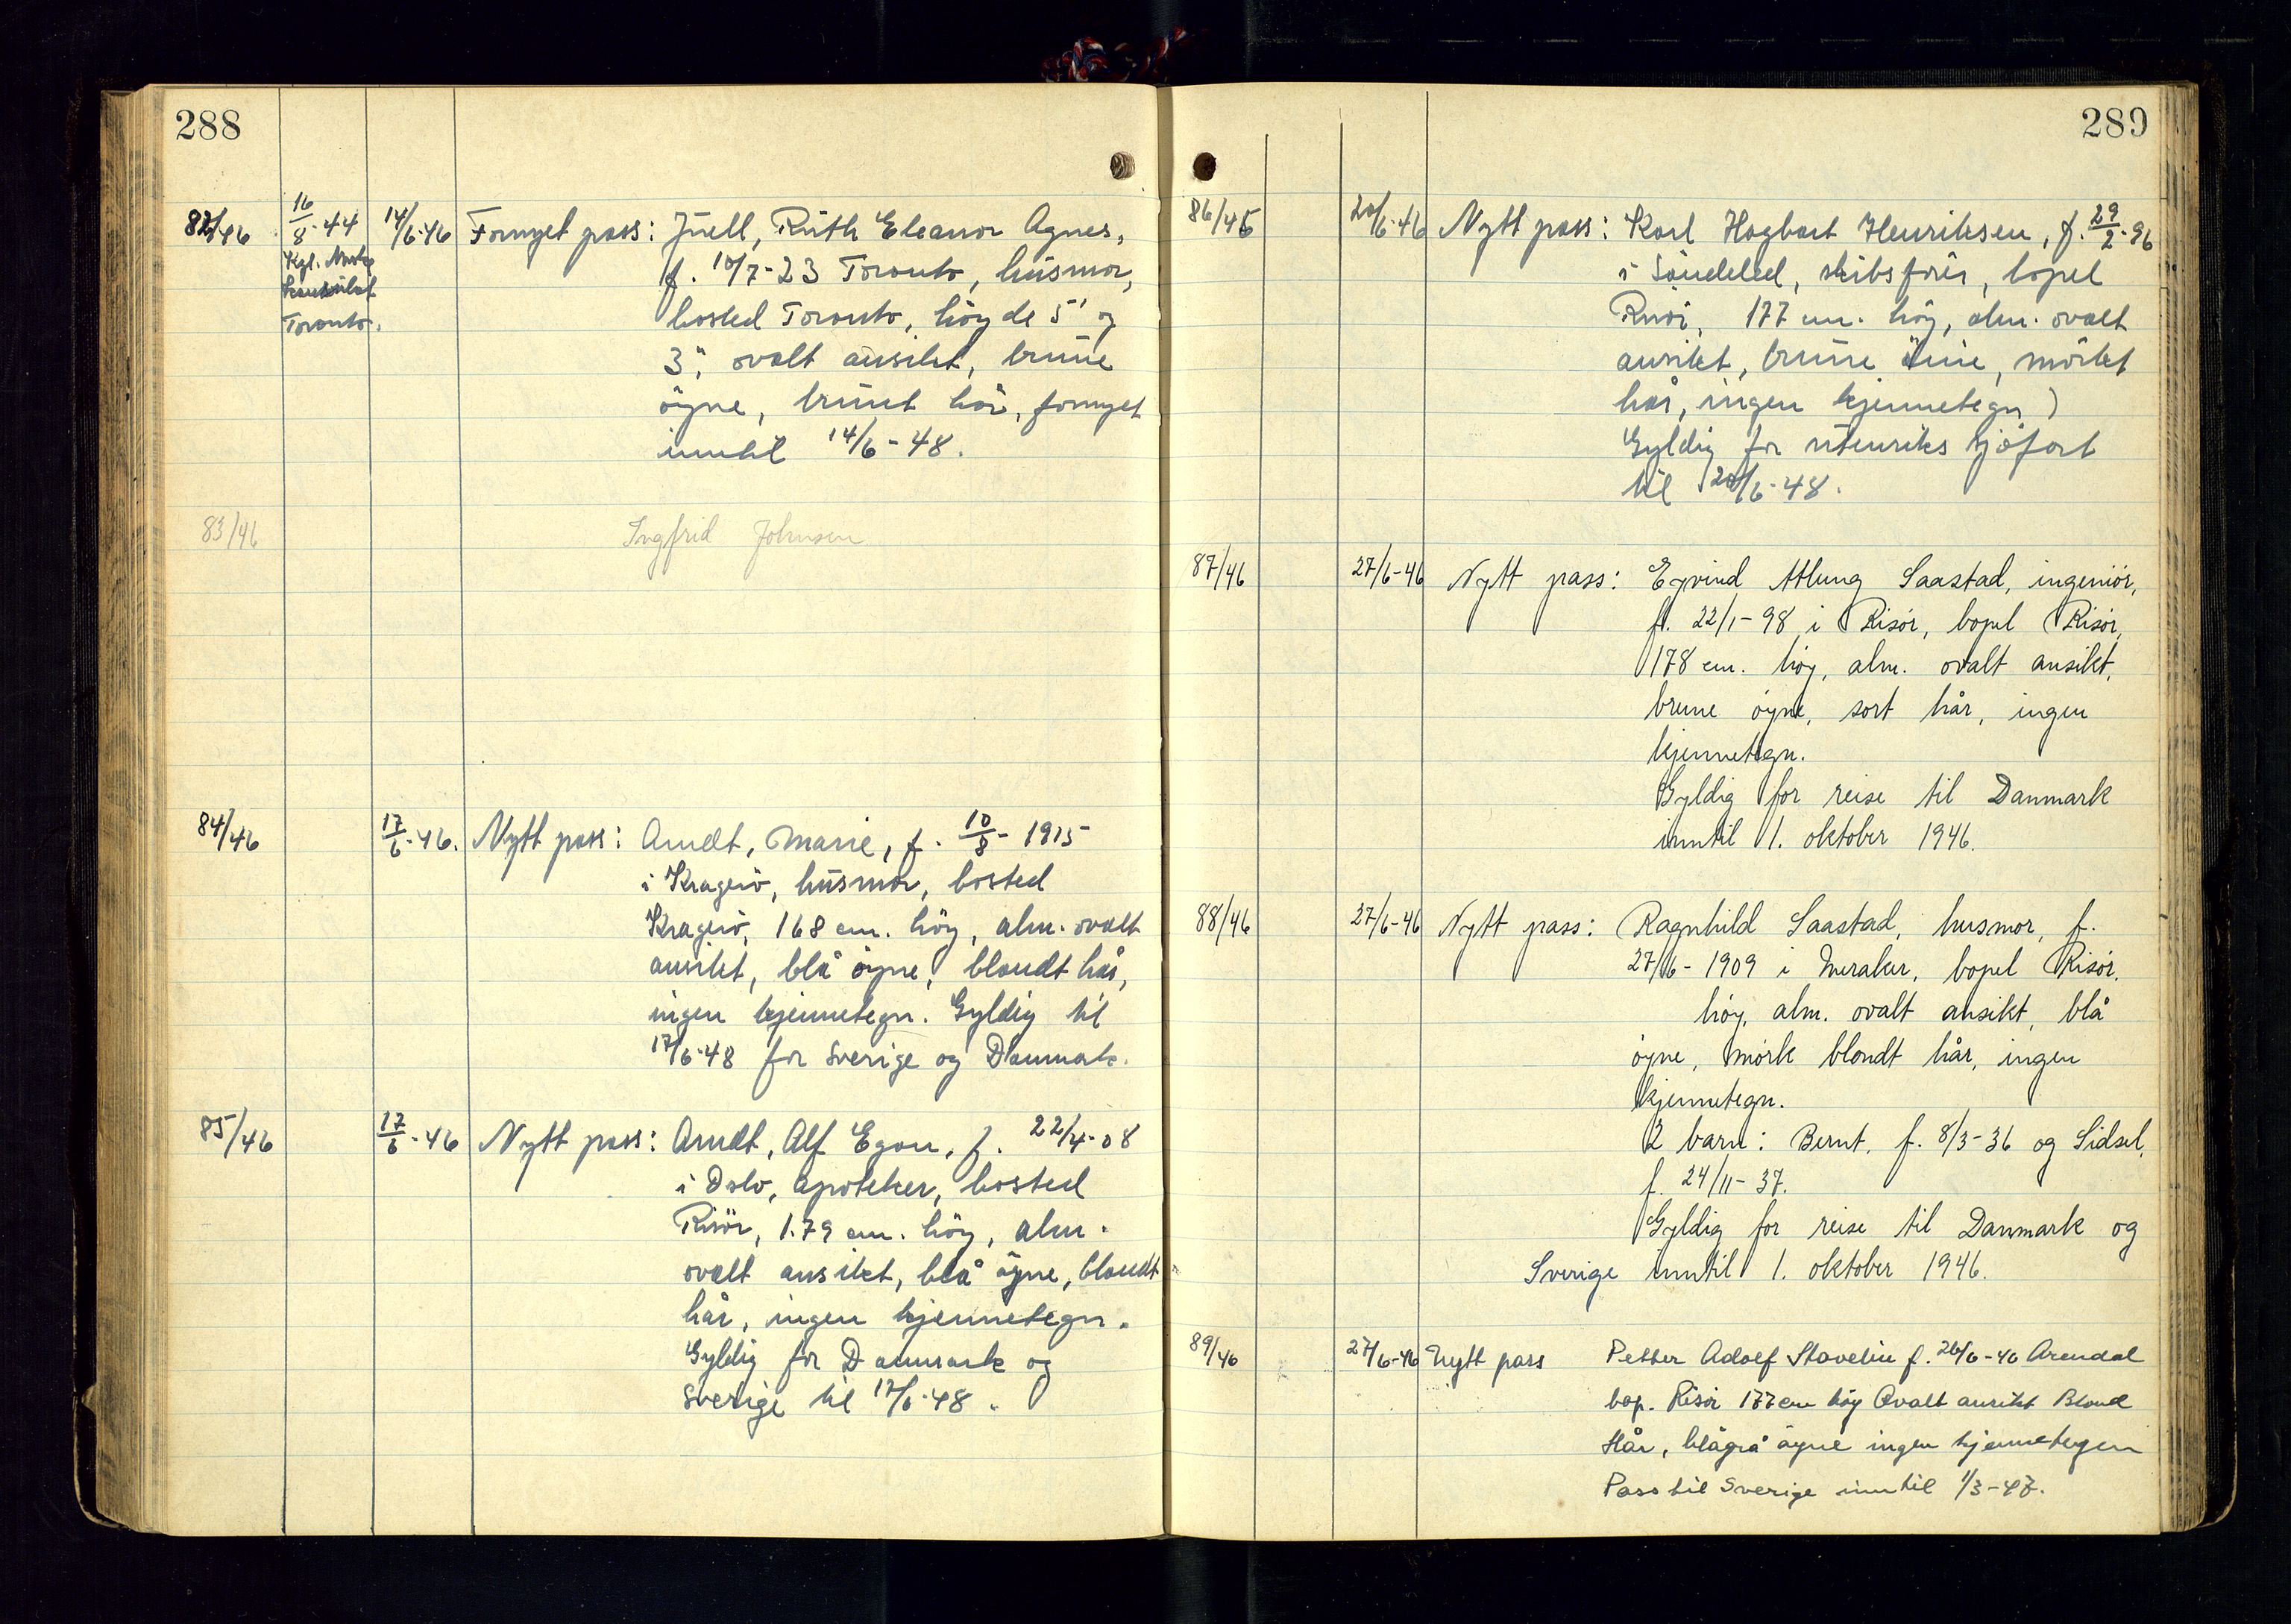 288
82/46 16/8-44 14/6-46 Fornyet pass: Juell, Ruth Eleanor Agnes,
Kgl. Norske f. 10/7-23 Toronto, husmor,
Konsulat bosted Toronto, höyde 5' og
Toronto. 3", ovalt ansikt, brune
öyne, brunt hår, fornyet
inntil 14/6-48.
83/46 Ingfrid Johnsen
84/46 17/6-46. Nytt pass: Arndt, Marie, f. 10/8-1915
i Kragerö, husmor, bosted
Kragerö, 168 cm. höy, alm. ovalt
ansikt, blå öyne, blondt hår,
ingen kjennetegn. Gyldig til
17/6-48 for Sverige og Danmark.
85/46 17/6-46 Nytt pass: Arndt, Alf Egon, f. 22/4-08
i Oslo, apoteker, bosted
Risör, 1.79 cm. höy, alm.
ovalt ansikt, blå öyne, blondt
hår, ingen kjennetegn.
Gyldig for Danmark og
Sverige til 17/6-48.
289
86/46 20/6-46 Nytt pass: Karl Hagbart Henriksen, f. 29/2-96
i Söndeled, skibsförer, bopel
Risör, 177 cm. höy, alm. ovalt
ansikt, brune öine, mörkt
hår, ingen kjennetegn)
Gyldig for utenriks sjöfart
til 20/6-48.
87/46 27/6-46 Nytt pass: Eyvind Atlung Saastad, ingeniör,
f. 22/1-98 i Risör, bopel Risör,
178 cm. höy, alm. ovalt ansikt,
brune öyne, sort hår, ingen
kjennetegn.
Gyldig for reise til Danmark
inntil 1. oktober 1946.
88/46 27/6-46 Nytt pass: Ragnhild Saastad, husmor, f.
27/6-1909 i Meraker, bopel Risör,
höy, alm. ovalt ansikt, blå
öyne, mörk blondt hår, ingen
kjennetegn.
2 barn: Bernt, f. 8/3-36 og Sidsel,
f. 24/11-37.
Gyldig for reise til Danmark og
Sverige inntil 1. oktober 1946.
89/46 27/6-46 Nytt pass Petter Adolf Stavelin f. 26/6-46 Arendal
bop. Risör 177 cm höy Ovalt ansikt Blond
Hår, blågrå öyne ingen kjennetegen
Pass til Sverige inntil 1/3-47.